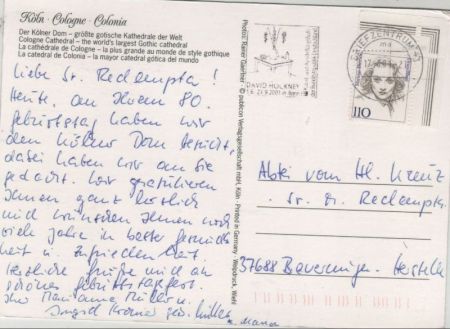 Köln · Cologne · Colonia
Der Kölner Dom – größte gotische Kathedrale der Welt
Cologne Cathedral – the world's largest Gothic cathedral
La cathédrale de Cologne – la plus grande au monde de style gothique
La catedral de Colonia – la mayor catedral gótica del mundo
Liebe Sr. Redempta!
Heute, an Ihrem 80.
Geburtstag haben wir
den Kölner Dom besucht,
dabei haben wir an Sie
gedacht. Wir gratulieren
Ihnen ganz herzlich
und wünschen Ihnen noch
viele Jahre in bester Gesund-
heit u. Zufriedenheit.
Herzliche Grüße und ein
schönes Geburtstagsfest.
Ihre Marianne
Ingrid geb.
u.
Photos: Rainer Gaertner
© publicon Verlagsgesellschaft mbH, Köln
Printed in Germany
DAVID HOCKNEY
in Bonn
BRIEFZENTRUM
110
Abtei vom Hl. Kreuz
Sr. M. Redempta
37688 Beverungen - Herstelle